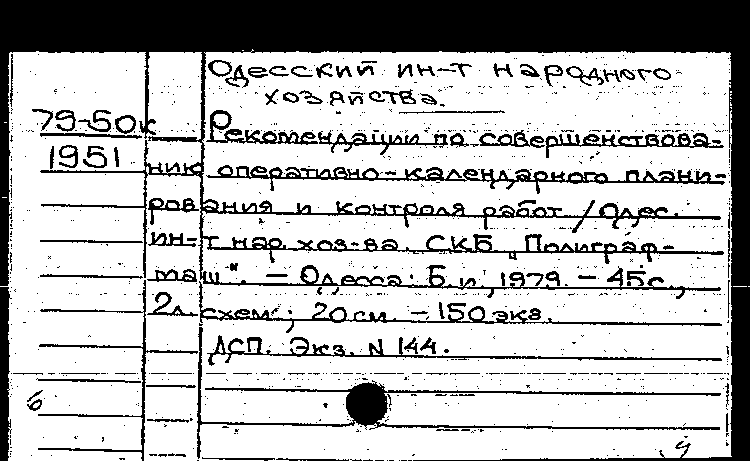 Одесский ин-т народного
хозяйства.
79-50к
1951
Рекомендации по совершенствова-
нию оперативно-календарного плани-
рования и контроля работ / Одес.
ин-т нар. хоз-ва. СКБ „Полиграф-
маш". — Одесса: Б.и., 1979. — 45с.,
2л. схем.; 20 см. — 150 экз.
ДСП. Экз. N 144.
б